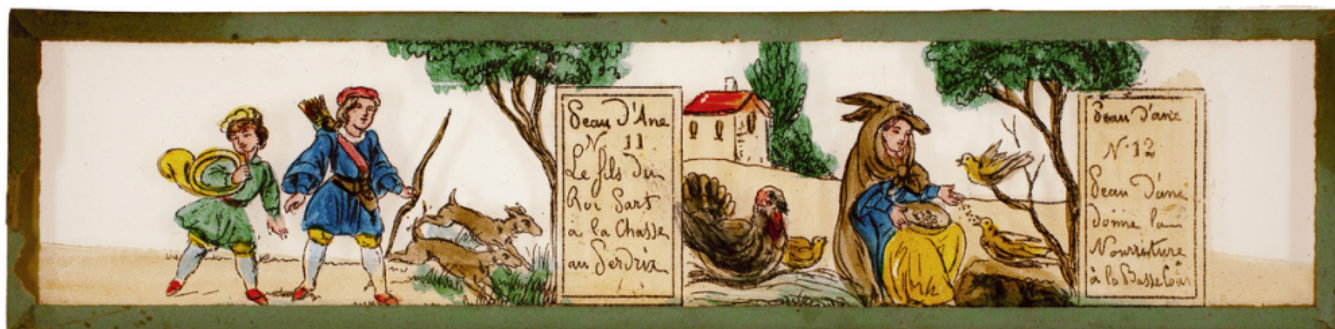 Peau d'Ane
N. 11
Le fils du
Roi Part
a la Chasse
au Perdrix
Peau d'ane
N. 12
Peau d'ane
donne la
Nourriture
à la Basse Cour